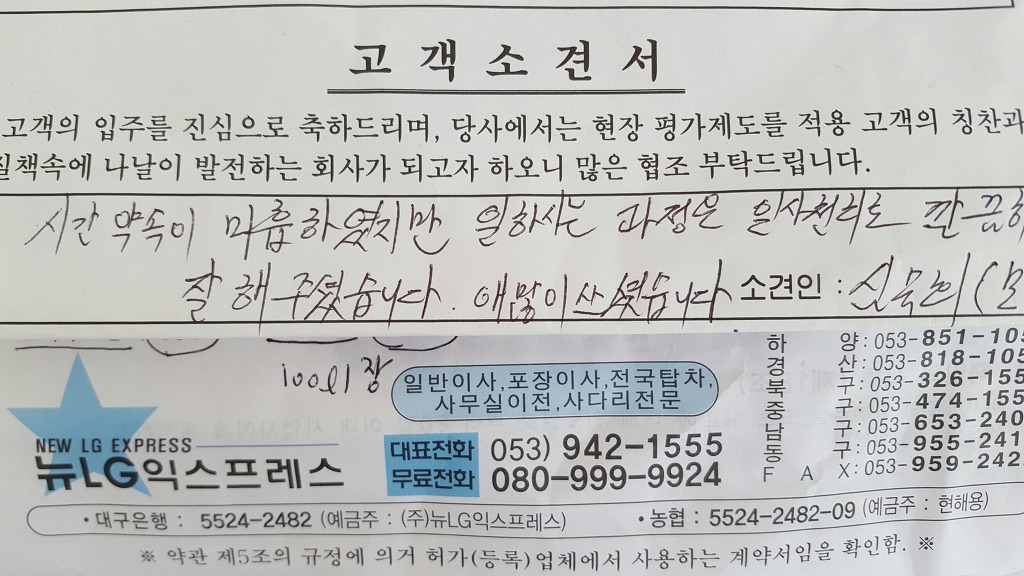 고객소견서
고객의 입주를 진심으로 축하드리며, 당사에서는 현장 평가제도를 적용 고객의 칭찬과
질책속에 나날이 발전하는 회사가 되고자 하오니 많은 협조 부탁드립니다.
시간 약속이 미흡하였지만 일하시는 과정은 일사천리로 깐끔하
잘 해 주셨습니다. 애많이 쓰셨습니다 소견인 :
일반이사,포장이사,전국탑차,
사무실이전,사다리전문
NEW LG EXPRESS
뉴LG익스프레스
대표전화 053) 942-1555
무료전화 080-999-9924
하 양 : 053-851-105
경 산 : 053-818-105
북 구 : 053-326-155
중 구 : 053-474-155
남 구 : 053-653-240
동 구 : 053-955-241
F A X : 053-959-242
• 대구은행 : 5524-2482 (예금주 : (주)뉴LG익스프레스) • 농협 : 5524-2482-09 (예금주 : 현해용)
※ 약관 제5조의 규정에 의거 허가(등록)업체에서 사용하는 계약서임을 확인함. ※